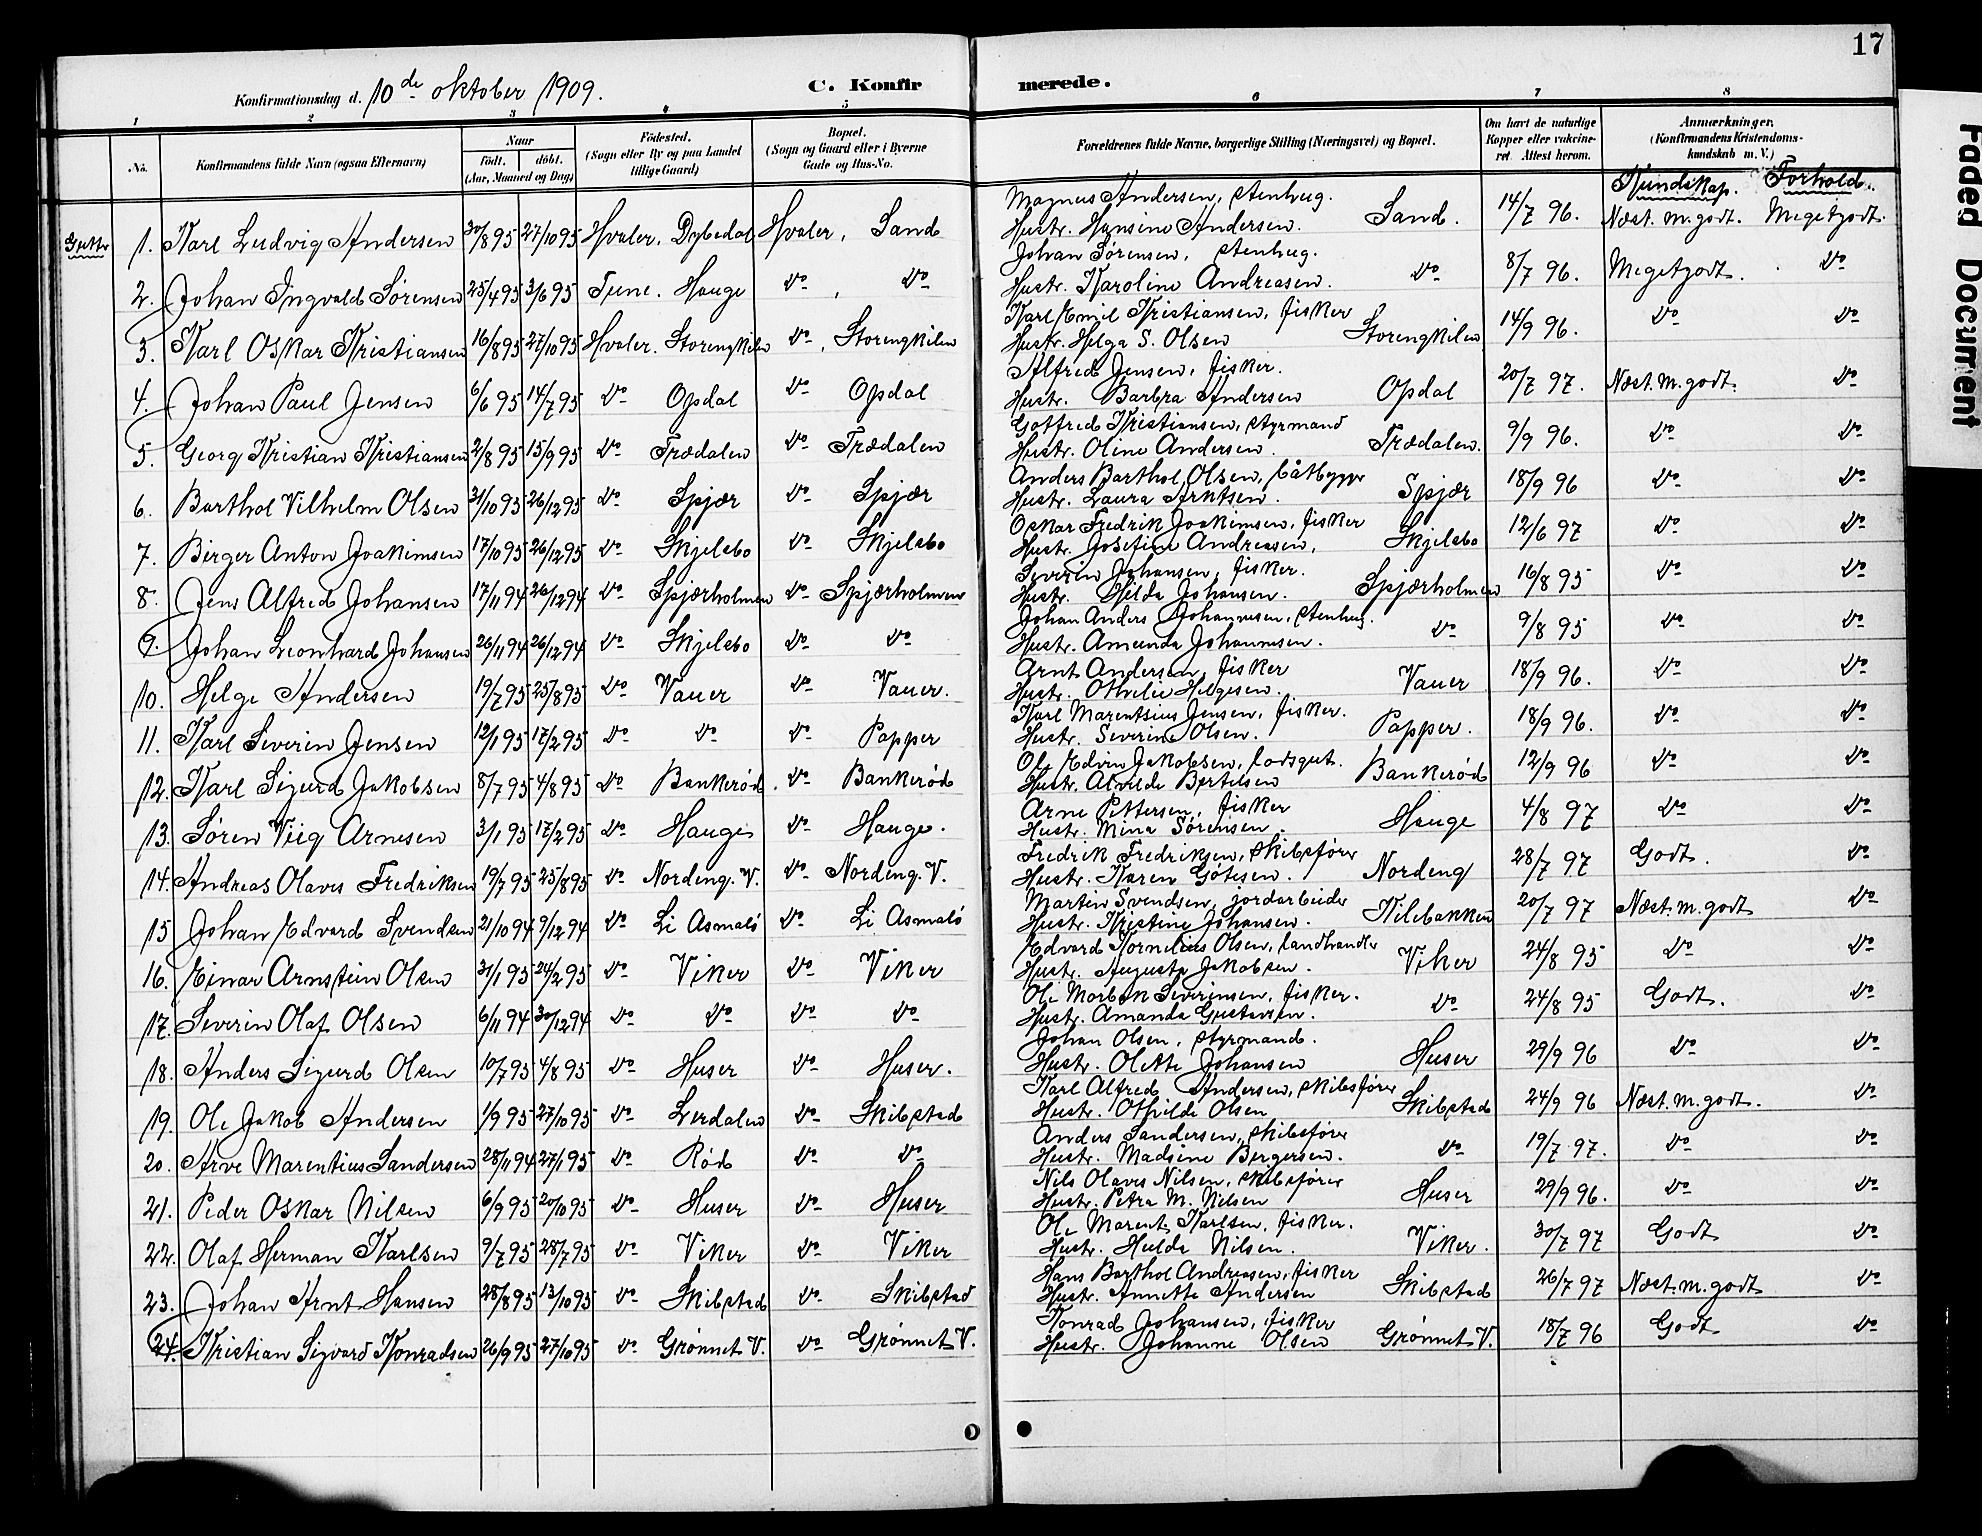 17
Konfirmationsdag d. 10de oktober 1909. C. Konfirmerede.
1 2 3 4 5 6 7 8
No. Konfirmandens fulde Navn (ogsaa Efternavn) Naar født. døbt. (Aar, Maaned og Dag) Fødested. (Sogn eller By og paa Landet tillige Gaard) Bopæl. (Sogn og Gaard eller i Byerne Gade og Hus-No. Forældrenes fulde Navne, borgerlige Stilling (Næringsvei) og Bopæl. Om havt de naturlige Kopper eller vaccineret. Attest herom. Anmærkninger, (Konfirmandens Kristendomskundskab m. V.)
Kundskap. Forhold.
Gutter
1. Karl Ludvig Andersen 30/8 95 27/10 95 Hvaler. Dybedal Hvaler, Sand Magnus Andersen, stenhug. Hustr. Hansine Andersen. Sand. 14/7 96. Næst. m. godt. Megetgodt.
2. Johan Ingvald Sørensen 25/4 95 3/6 95 Tune. Hauge do, do Johan Sørensen, stenhug. Hustr. Karoline Andreasen. do 8/7 96. Megetgodt. do
3. Karl Oskar Kristiansen 16/8 95 27/10 95 Hvaler. Storengkilen do, Storengkilen Karl Emil Kristiansen, fisker Hustr. Helga S. Olsen Storengkilen 14/9 96. do do
4. Johan Paul Jensen 6/6 95 14/7 95 do Opdal do Opdal Alfred Jensen, fisker. Hustr. Barbra Andersen Opdal 20/7 97. Næst. m. godt. do
5. Georg Kristian Kristiansen 2/8 95 15/9 95 do Trædalen do Trædalen Gotfred Kristiansen, styrmand Hustr. Oline Andersen. Trædalen. 9/9 96. do do
6. Barthol Vilhelm Olsen 31/10 95 26/12 95 do Spjær do Spjær Anders Barthol Olsen, båtbygger Hustr. Laura Arntsen. Spjær 18/9 96 do do
7. Birger Anton Joakimsen 17/10 95 26/12 95 do Skjelsbo do Skjelsbo Oskar Fredrik Joakimsen, fisker Hustr. Josefine Andreassen, Skjelsbo 12/6 97 do do
8. Jens Alfred Johansen 17/11 94 26/12 94 do Spjærholmen do Spjærholmen Severin Johansen, fisker. Hustr. Hilda Johansen. Spjærholmen 16/8 95 do do
9. Johan Leonhard Johansen 26/11 94 26/12 94 do Skjelsbo do do Johan Anders Johannesen, stenhug. Hustr. Amanda Johannesen. do 9/8 95 do do
10. Helge Andersen 19/7 95 25/8 95 do Vauer do Vauer. Arnt Andersen, fisker Hustr. Othelie Helgesen. Vauer 18/9 96. do do
11. Karl Severin Jensen 12/1 95 17/2 95 do do do Papper Karl Marentsius Jensen, fisker. Hustr. Severine Olsen. Papper. 18/9 96. do do
12. Karl Sigurd Jakobsen 8/7 95 4/8 95 do Bankerød. do Bankerød Ole Edvin Jakobsen, lodsgut. Hustr. Alvilde Bertelsen Bankerød 12/9 96 do do
13. Søren Viig Arnesen 3/1 95 17/2 95 do Hauge do Hauge. Arne Pettersen, fisker Hustr. Mina Sørensen. Hauge 4/8 97 do do
14. Andreas Olaves Fredriksen 19/7 95 25/8 95 do Nordeng. V. do Nordeng. V. Fredrik Fredriksen, skibsfører Hustr. Karen Gøtesen. Nordeng 28/7 97 Godt. do
15 Johan Edvard Svendsen 21/10 94 9/12 94 do Li Asmalø do Li Asmalø Martin Svendsen, jordarbeider Hustr. Kristine Johansen. Kilebakken 20/7 97 Næst. m. godt do
16. Einar Arnstein Olsen 31/1 95 24/2 95 do Viker do Viker Edvard Kornelius Olsen, landhandler Hustr. Augusta Jakobsen. Viker 24/8 95 do do
17. Severin Olaf Olsen 6/11 94 30/12 94 do do do do Ole Morten Severinsen, fisker. Hustr. Amanda Gustavsen. do 24/8 95 Godt. do
18. Anders Sigurd Olsen 10/7 95 4/8 95 do Huser do Huser. Johan Olsen, styrmand. Hustr. Olette Johansen Huser 29/9 96 do do
19. Ole Jakob Andersen 1/9 95 27/10 95 do Lerdalen do Skibstad Karl Alfred Andersen, skibsfører Hustr. Othilde Olsen Skibstad 24/9 96 Næst. m. godt. do
20. Arve Marentius Sandersen 28/11 94 27/1 95 do Rød do do Anders Sandersen, skibsfører Hustr. Madsine Bergersen. do 19/7 97. do do
21. Peder Oskar Nilsen 6/9 95 20/10 95 do Huser do Huser Nils Olaves Nilsen, skibsfører Hustr. Petra M. Nilsen Huser 29/9 96. do do
22. Olaf Herman Karlsen 9/7 95 28/7 95 do Viker do Viker Ole Marent. Karlsen, fisker. Hustr. Hulda Nilsen. Viker. 30/7 97 Godt do
23. Johan Arnt Hansen 28/8 95 13/10 95 do Skibstad do Skibstad Hans Barthol Andreasen, fisker Hustr. Annette Andersen Skibstad 26/7 97 Næst. m. godt do
24. Kristian Sigvard Konradsen 26/9 95 27/10 95 do Grønnet V. do Grønnet V. Konrad Johansen, fisker Hustr. Johanne Olsen Grønnet V. 18/7 96 Godt do
Faded Document